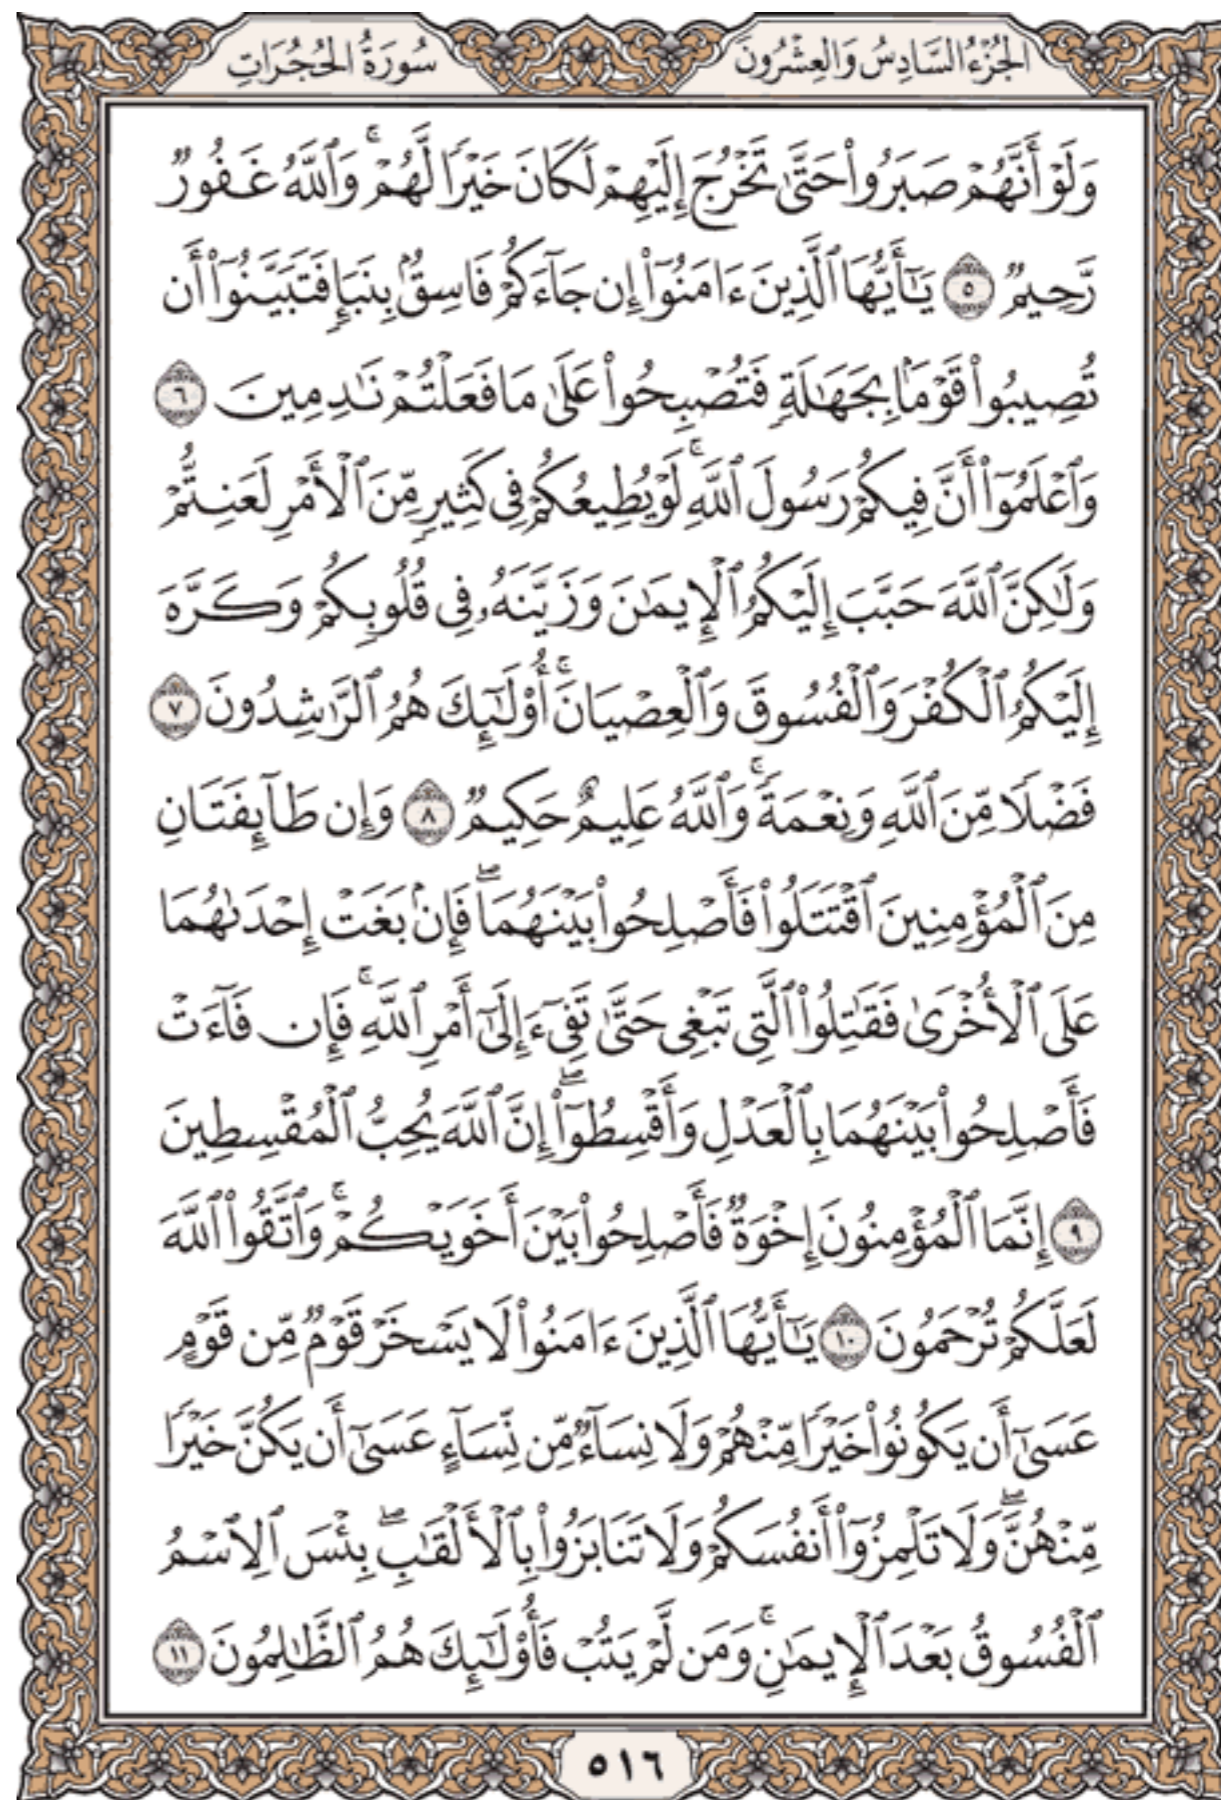 الجُزْءُ السَّادِسُ وَالعِشْرُونَ
سُورَةُ الحُجُرَاتِ
وَلَوۡ أَنَّهُمۡ صَبَرُواْ حَتَّىٰ تَخۡرُجَ إِلَيۡهِمۡ لَكَانَ خَيۡرٗا لَّهُمۡۚ وَٱللَّهُ غَفُورٞ
رَّحِيمٞ ٥ يَٰٓأَيُّهَا ٱلَّذِينَ ءَامَنُوٓاْ إِن جَآءَكُمۡ فَاسِقُۢ بِنَبَإٖ فَتَبَيَّنُوٓاْ أَن
تُصِيبُواْ قَوۡمَۢا بِجَهَٰلَةٖ فَتُصۡبِحُواْ عَلَىٰ مَا فَعَلۡتُمۡ نَٰدِمِينَ ٦
وَٱعۡلَمُوٓاْ أَنَّ فِيكُمۡ رَسُولَ ٱللَّهِۚ لَوۡ يُطِيعُكُمۡ فِي كَثِيرٖ مِّنَ ٱلۡأَمۡرِ لَعَنِتُّمۡ
وَلَٰكِنَّ ٱللَّهَ حَبَّبَ إِلَيۡكُمُ ٱلۡإِيمَٰنَ وَزَيَّنَهُۥ فِي قُلُوبِكُمۡ وَكَرَّهَ
إِلَيۡكُمُ ٱلۡكُفۡرَ وَٱلۡفُسُوقَ وَٱلۡعِصۡيَانَۚ أُوْلَٰٓئِكَ هُمُ ٱلرَّٰشِدُونَ ٧
فَضۡلٗا مِّنَ ٱللَّهِ وَنِعۡمَةٗۚ وَٱللَّهُ عَلِيمٌ حَكِيمٞ ٨ وَإِن طَآئِفَتَانِ
مِنَ ٱلۡمُؤۡمِنِينَ ٱقۡتَتَلُواْ فَأَصۡلِحُواْ بَيۡنَهُمَاۖ فَإِنۢ بَغَتۡ إِحۡدَىٰهُمَا
عَلَى ٱلۡأُخۡرَىٰ فَقَٰتِلُواْ ٱلَّتِي تَبۡغِي حَتَّىٰ تَفِيٓءَ إِلَىٰٓ أَمۡرِ ٱللَّهِۚ فَإِن فَآءَتۡ
فَأَصۡلِحُواْ بَيۡنَهُمَا بِٱلۡعَدۡلِ وَأَقۡسِطُوٓاْۖ إِنَّ ٱللَّهَ يُحِبُّ ٱلۡمُقۡسِطِينَ
٩ إِنَّمَا ٱلۡمُؤۡمِنُونَ إِخۡوَةٞ فَأَصۡلِحُواْ بَيۡنَ أَخَوَيۡكُمۡۚ وَٱتَّقُواْ ٱللَّهَ
لَعَلَّكُمۡ تُرۡحَمُونَ ١٠ يَٰٓأَيُّهَا ٱلَّذِينَ ءَامَنُواْ لَا يَسۡخَرۡ قَوۡمٞ مِّن قَوۡمٍ
عَسَىٰٓ أَن يَكُونُواْ خَيۡرٗا مِّنۡهُمۡ وَلَا نِسَآءٞ مِّن نِّسَآءٍ عَسَىٰٓ أَن يَكُنَّ خَيۡرٗا
مِّنۡهُنَّۖ وَلَا تَلۡمِزُوٓاْ أَنفُسَكُمۡ وَلَا تَنَابَزُواْ بِٱلۡأَلۡقَٰبِۖ بِئۡسَ ٱلِٱسۡمُ
ٱلۡفُسُوقُ بَعۡدَ ٱلۡإِيمَٰنِۚ وَمَن لَّمۡ يَتُبۡ فَأُوْلَٰٓئِكَ هُمُ ٱلظَّٰلِمُونَ ١١
٥١٦